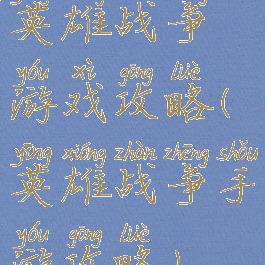 英雄战争
yóu xì gōng lüè
游戏攻略(
yīng xióng zhàn zhēng shǒu
英雄战争手
yóu gōng lüè
游攻略)